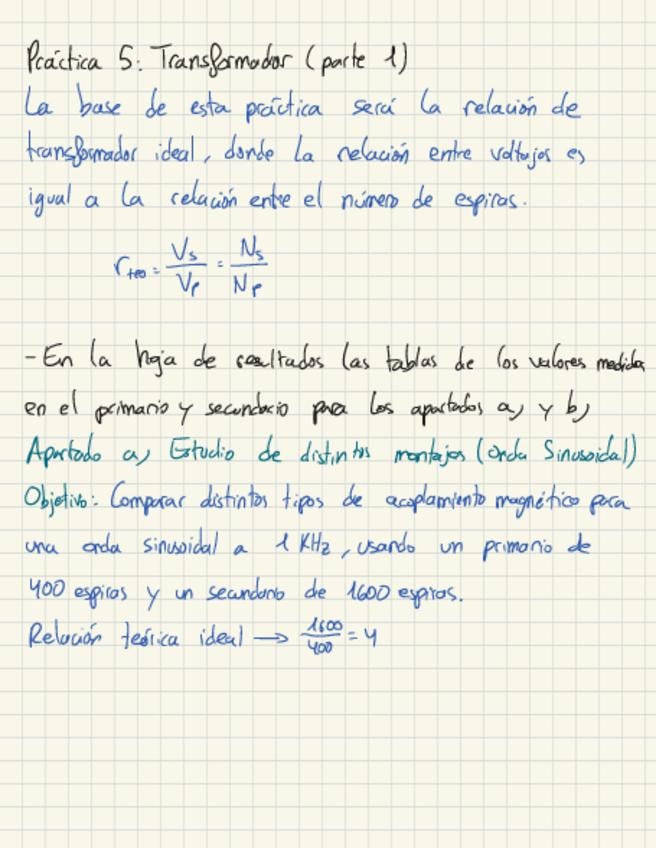 Práctica 5: Transformador (parte 1)
La base de esta práctica será la relación de
transformador ideal, donde la relación entre voltajes es
igual a la relación entre el número de espiras.
r_teo = V_s/V_p = N_s/N_p
- En la hoja de resultados las tablas de los valores medidos
en el primario y secundario para los apartados a) y b)
Apartado a) Estudio de distintos montajes (Onda Sinusoidal)
Objetivo: Comparar distintos tipos de acoplamiento magnético para
una onda sinusoidal a 1 KHz, usando un primario de
400 espiras y un secundario de 1600 espiras.
Relación teórica ideal → 1600/400 = 4